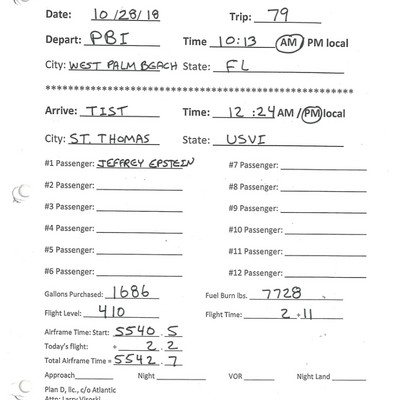 Date: 10/28/18 Trip: 79
Depart: PBI Time 10:13 AM / PM local
City: WEST PALM BEACH State: FL
************************************************************
Arrive: TIST Time: 12:24 AM / PM local
City: ST. THOMAS State: USVI
#1 Passenger: JEFFREY EPSTEIN #7 Passenger:
#2 Passenger: #8 Passenger:
#3 Passenger: #9 Passenger:
#4 Passenger: #10 Passenger:
#5 Passenger: #11 Passenger:
#6 Passenger: #12 Passenger:
Gallons Purchased: 1686 Fuel Burn lbs. 7728
Flight Level: 410 Flight Time: 2+11
Airframe Time: Start: 5540.5
Today's flight: + 2.2
Total Airframe Time = 5542.7
Approach Night VOR Night Land
Plan D, llc., c/o Atlantic
Attn: Larry Visoski